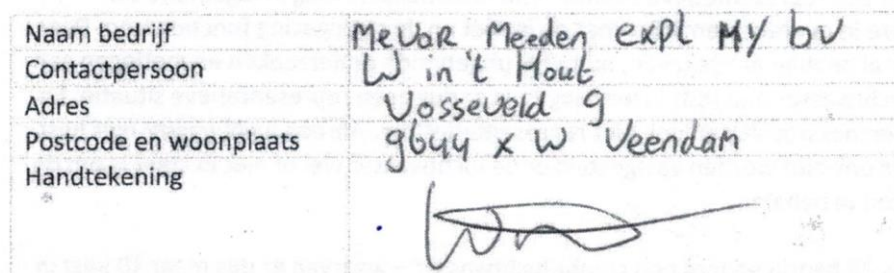 Naam bedrijf MeVoR Meeden expl My bv
Contactpersoon W in t Hout
Adres Vosseveld 9
Postcode en woonplaats 9644 XW Veendam
Handtekening